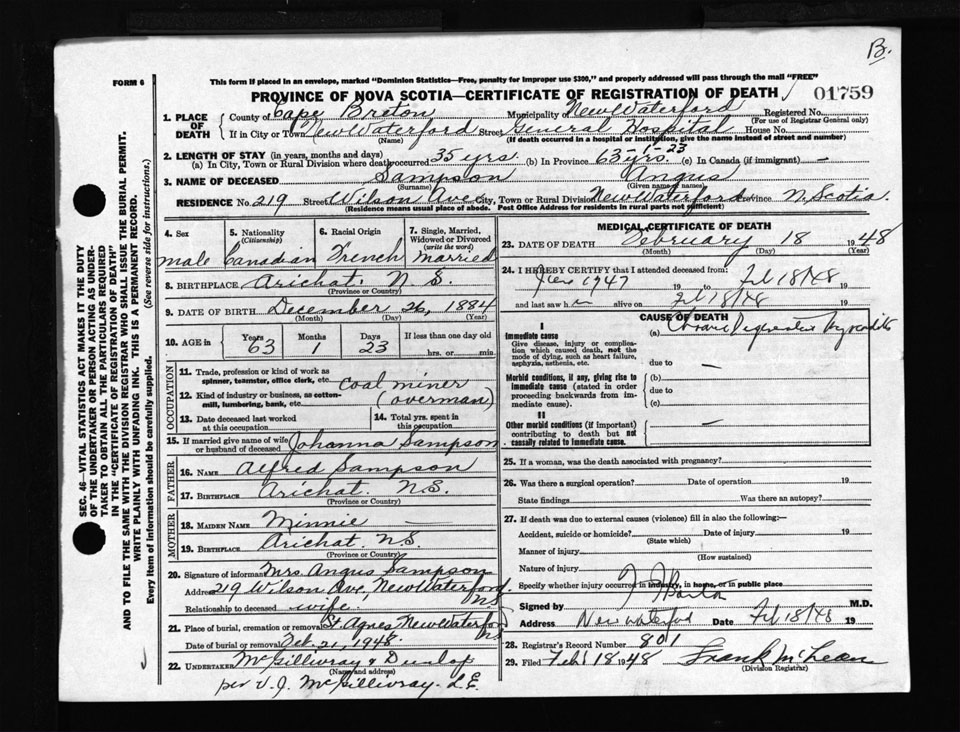 B.
FORM 6
This form if placed in an envelope, marked "Dominion Statistics—Free, penalty for improper use $300," and properly addressed will pass through the mail "FREE"
PROVINCE OF NOVA SCOTIA—CERTIFICATE OF REGISTRATION OF DEATH
01759
1. PLACE OF DEATH
County of Cape Breton Municipality of New Waterford Registered No.
(For use of Registrar General only)
If in City or Town New Waterford Street General Hospital House No.
(Name) (If death occurred in a hospital or institution, give the name instead of street and number)
2. LENGTH OF STAY (in years, months and days)
(a) In City, Town or Rural Division where death occurred 35 yrs. (b) In Province 63 yrs. -1-23 (c) In Canada (if immigrant) —
3. NAME OF DECEASED Sampson Angus
(Surname) (Given name or names)
RESIDENCE No. 219 Street Wilson Ave City, Town or Rural Division New Waterford Province N. Scotia.
(Residence means usual place of abode. Post Office Address for residents in rural parts not sufficient)
4. Sex 5. Nationality (Citizenship) 6. Racial Origin 7. Single, Married, Widowed or Divorced (write the word)
male Canadian French married
8. BIRTHPLACE Arichat N.S.
(Province or Country)
9. DATE OF BIRTH December 26, 1884
(Month) (Day) (Year)
10. AGE in Years Months Days If less than one day old
63 1 23 hrs. or min.
OCCUPATION
11. Trade, profession or kind of work as spinner, teamster, office clerk, etc. coal miner
12. Kind of industry or business, as cotton-mill, lumbering, bank, etc. (overman)
13. Date deceased last worked at this occupation 14. Total yrs. spent in this occupation
15. If married give name of wife or husband of deceased Johanna Sampson.
FATHER
16. NAME Alfred Sampson
17. BIRTHPLACE Arichat. N.S.
(Province or Country)
MOTHER
18. MAIDEN NAME Minnie —
19. BIRTHPLACE Arichat, N.S.
(Province or Country)
20. Signature of informant Mrs. Angus Sampson
Address 219 Wilson Ave, New Waterford, N.S.
Relationship to deceased wife.
21. Place of burial, cremation or removal St Agnes New Waterford N.S.
Date of burial or removal Feb. 21, 1948.
22. UNDERTAKER McGillivray & Dunlop
(Name and address)
per V. J. McGillivray. L.E.
MEDICAL CERTIFICATE OF DEATH
23. DATE OF DEATH February 18 1948
(Month) (Day) (Year)
24. I HEREBY CERTIFY that I attended deceased from:
1947 19 to Feb 18/48 19
and last saw h alive on Feb 18/48 19
CAUSE OF DEATH
I
Immediate cause (a) Chronic Myocarditis
Give disease, injury or complication which caused death, not the mode of dying, such as heart failure, asphyxia, asthenia, etc.
due to —
Morbid conditions, if any, giving rise to immediate cause (stated in order proceeding backwards from immediate cause).
(b)
due to
(c)
II
Other morbid conditions (if important) contributing to death but not causally related to immediate cause.
—
25. If a woman, was the death associated with pregnancy?
26. Was there a surgical operation? Date of operation 19
State findings Was there an autopsy?
27. If death was due to external causes (violence) fill in also the following:—
Accident, suicide or homicide? Date of injury 19
(State which)
Manner of injury
(How sustained)
Nature of injury
Specify whether injury occurred in industry, in home, or in public place
Signed by M.D.
Address New Waterford Date Feb 18/48 19
28. Registrar's Record Number 801
29. Filed Feb 18 1948 Frank McLean
(Division Registrar)
SEC. 46—VITAL STATISTICS ACT MAKES IT THE DUTY
OF THE UNDERTAKER OR PERSON ACTING AS UNDER-
TAKER TO OBTAIN ALL THE PARTICULARS REQUIRED
IN THE "CERTIFICATE OF REGISTRATION OF DEATH"
AND TO FILE THE SAME WITH THE DIVISION REGISTRAR WHO SHALL ISSUE THE BURIAL PERMIT.
WRITE PLAINLY WITH UNFADING INK. THIS IS A PERMANENT RECORD.
Every item of information should be carefully supplied. (See reverse side for instructions.)